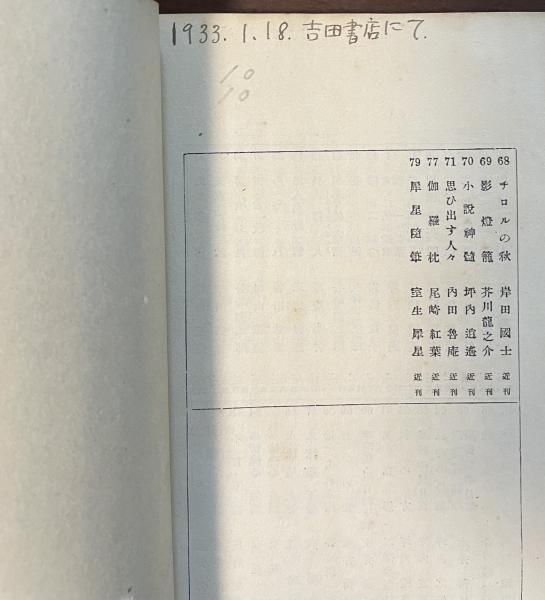 1933. 1. 18. 吉田書店にて.
10
10
68 チロルの秋 岸田國士 近刊
69 影燈籠 芥川龍之介 近刊
70 小説神髓 坪內逍遙 近刊
71 思ひ出す人々 內田魯庵 近刊
77 伽羅枕 尾崎紅葉 近刊
79 犀星隨筆 室生犀星 近刊